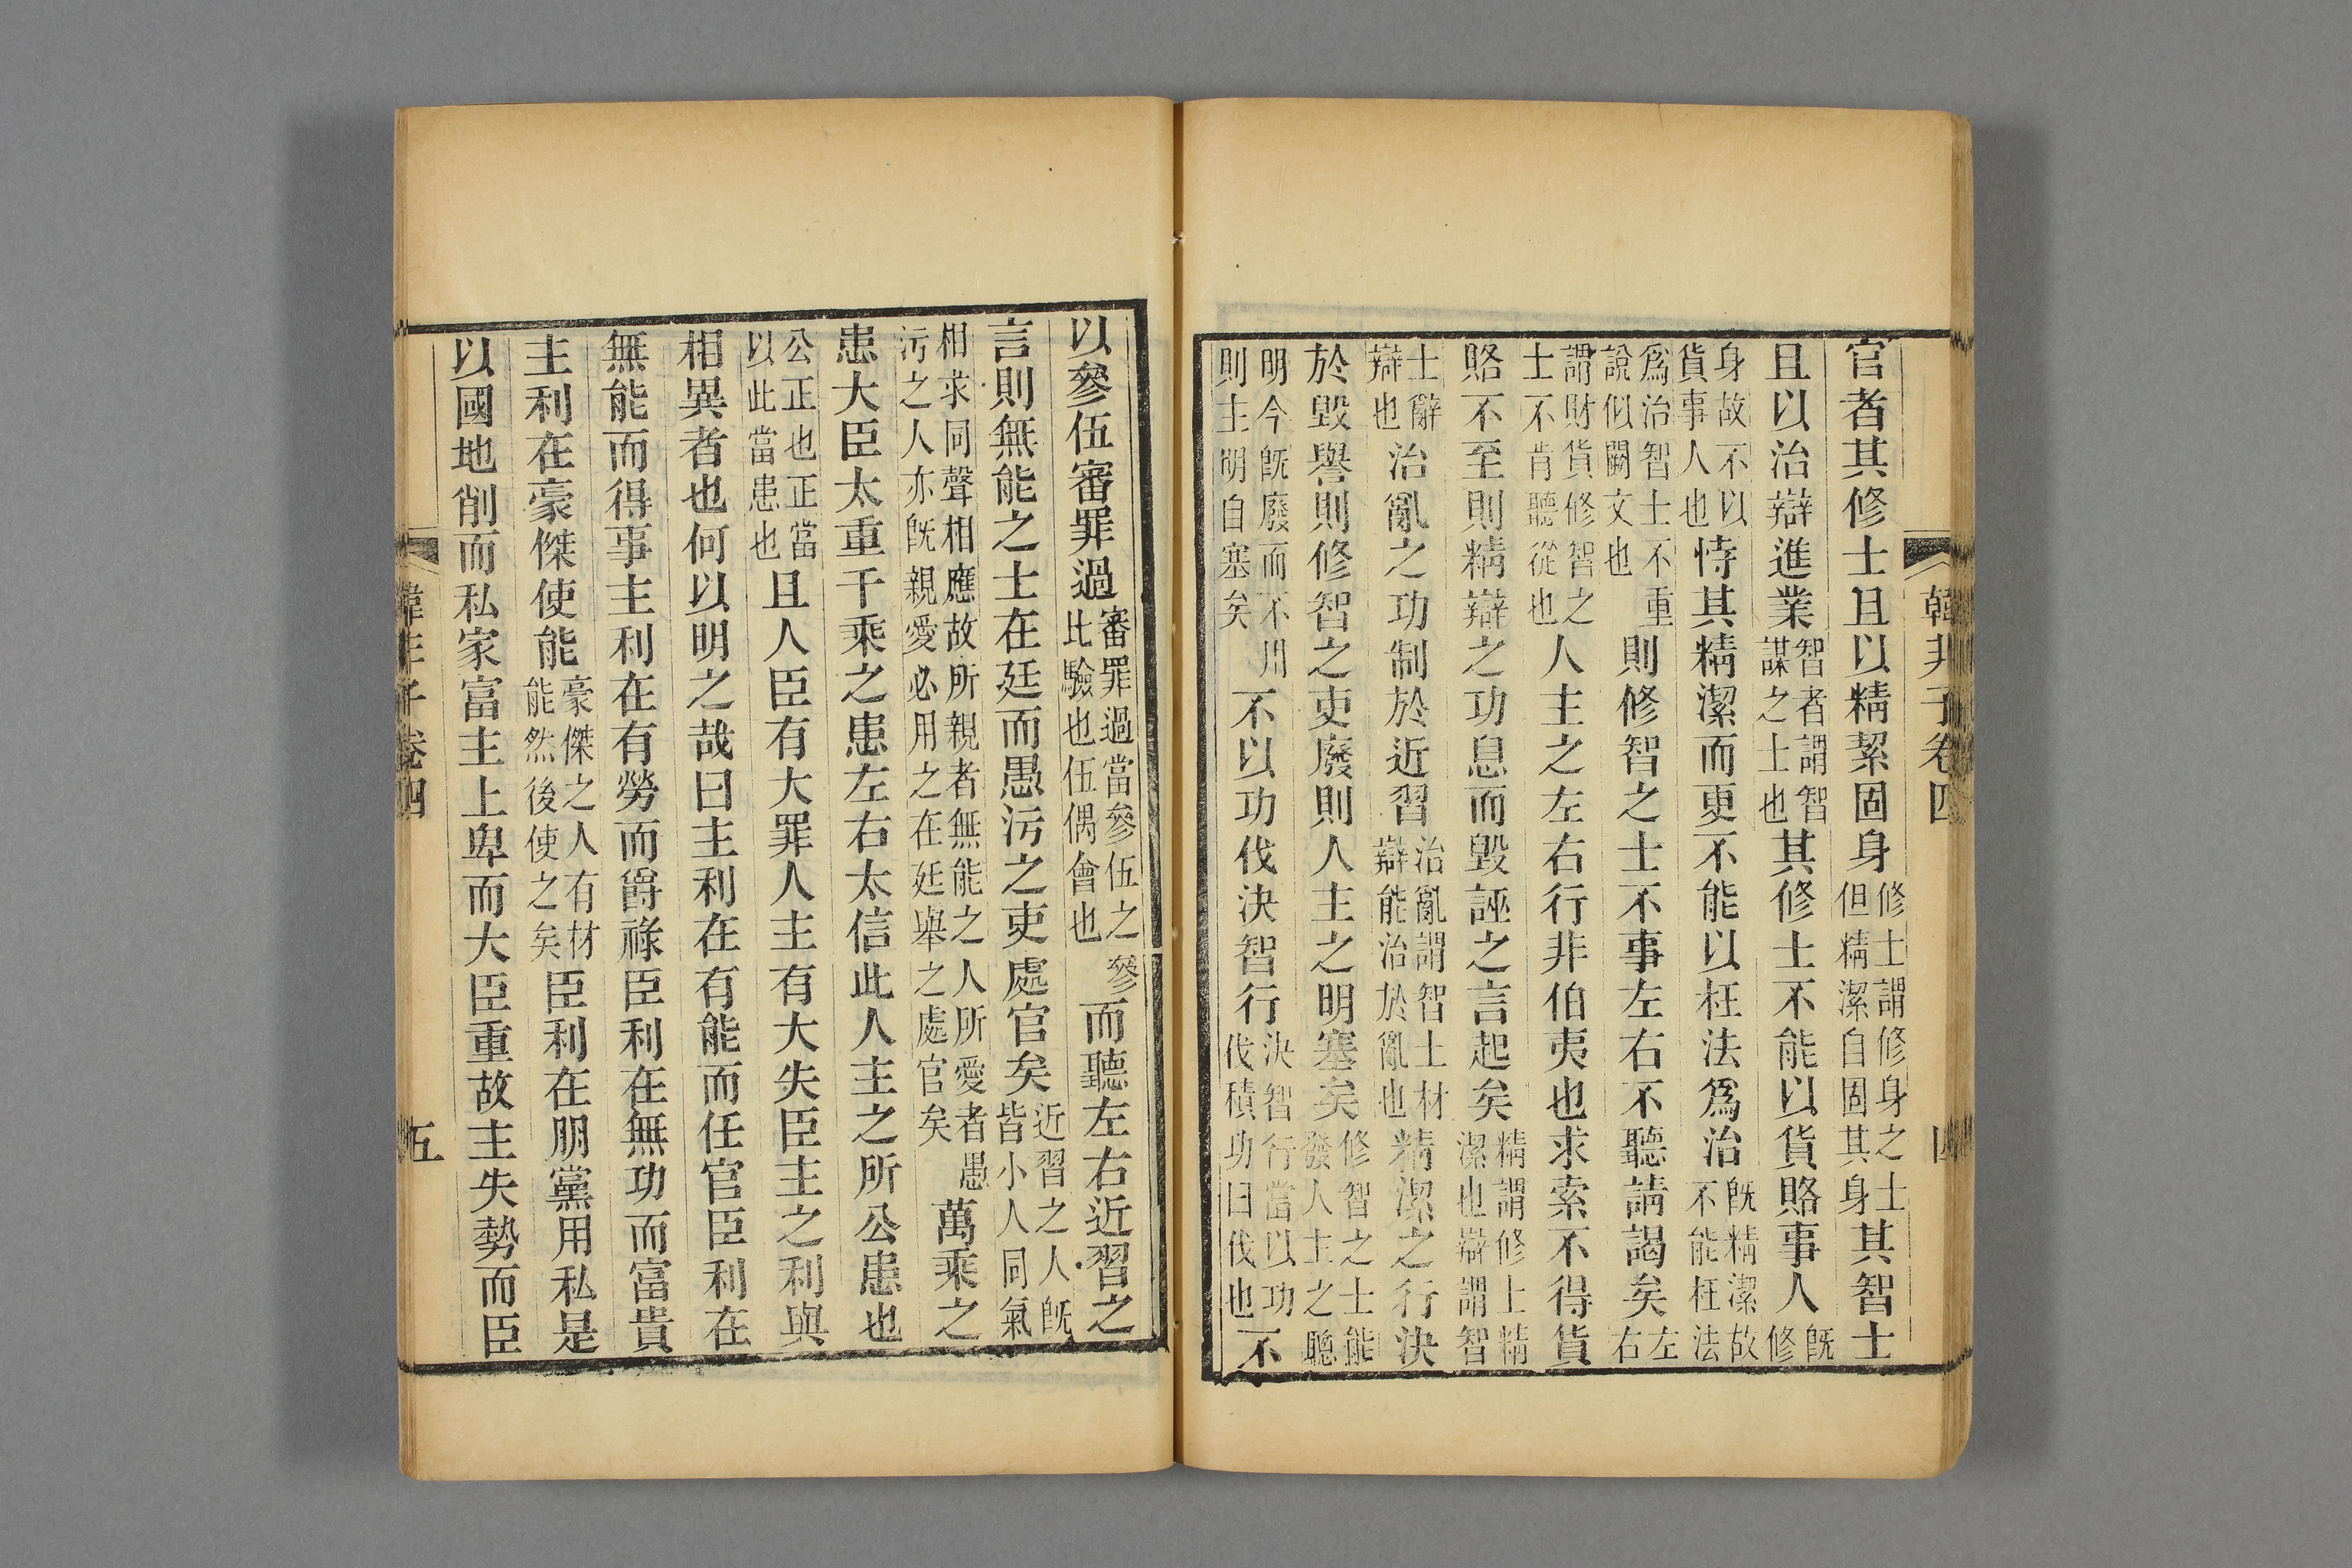 韓非子卷四
官者其修士且以精絜固身修士謂修身之士但精潔自固其身其智士
且以治辯進業智者謂智謀之士也其修士不能以貨賂事人既修
身故不以貨事人也恃其精潔而更不能以枉法爲治既精潔故不能枉法
爲治智士不重說似闕文也則修智之士不事左右不聽請謁矣左右
謂財貨修智之士不肯聽從也人主之左右行非伯夷也求索不得貨
賂不至則精辯之功息而毀誣之言起矣精謂修士精潔也辯謂智
士辭辯也治亂之功制於近習治亂謂智士材辯能治於亂也精潔之行決
於毀譽則修智之吏廢則人主之明塞矣修智之士能發人主之聽
明今既廢而不用則主明自塞矣不以功伐決智行決智行當以功伐積功曰伐也不
以參伍審罪過審罪過當參伍之參比驗也伍偶會也而聽左右近習之
言則無能之士在廷而愚污之吏處官矣近習之人既皆小人同氣
相求同聲相應故所親者無能之人所愛者愚污之人亦既親愛必用之在廷舉之處官矣萬乘之
患大臣太重千乘之患左右太信此人主之所公患也
公正也正當以此當患也且人臣有大罪人主有大失臣主之利與
相異者也何以明之哉曰主利在有能而任官臣利在
無能而得事主利在有勞而爵祿臣利在無功而富貴
主利在豪傑使能豪傑之人有材能然後使之矣臣利在朋黨用私是
以國地削而私家富主上卑而大臣重故主失勢而臣
韓非子卷四
五